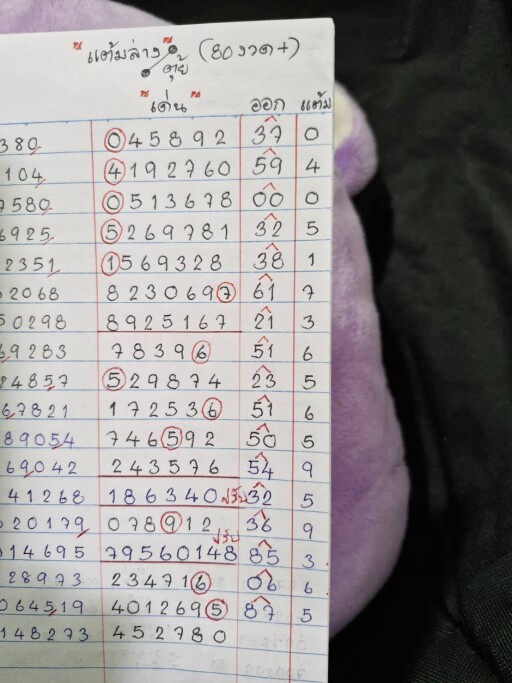 "แต้มล่าง" (80งวด+)
ตุ้ย
"เด่น" ออก แต้ม
380 045892 37 0
104 4192760 59 4
7580 0513678 00 0
6925 5269781 32 5
2351 1569328 38 1
2068 8230697 61 7
50298 8925167 21 3
69283 78396 51 6
24857 529874 23 5
67821 172536 51 6
89054 746592 50 5
69042 243576 54 9
41268 186340 ปรับ 32 5
620179 078912 36 9
ปรับ
014695 79560148 85 3
28973 234716 06 6
064519 4012695 87 5
148273 452780